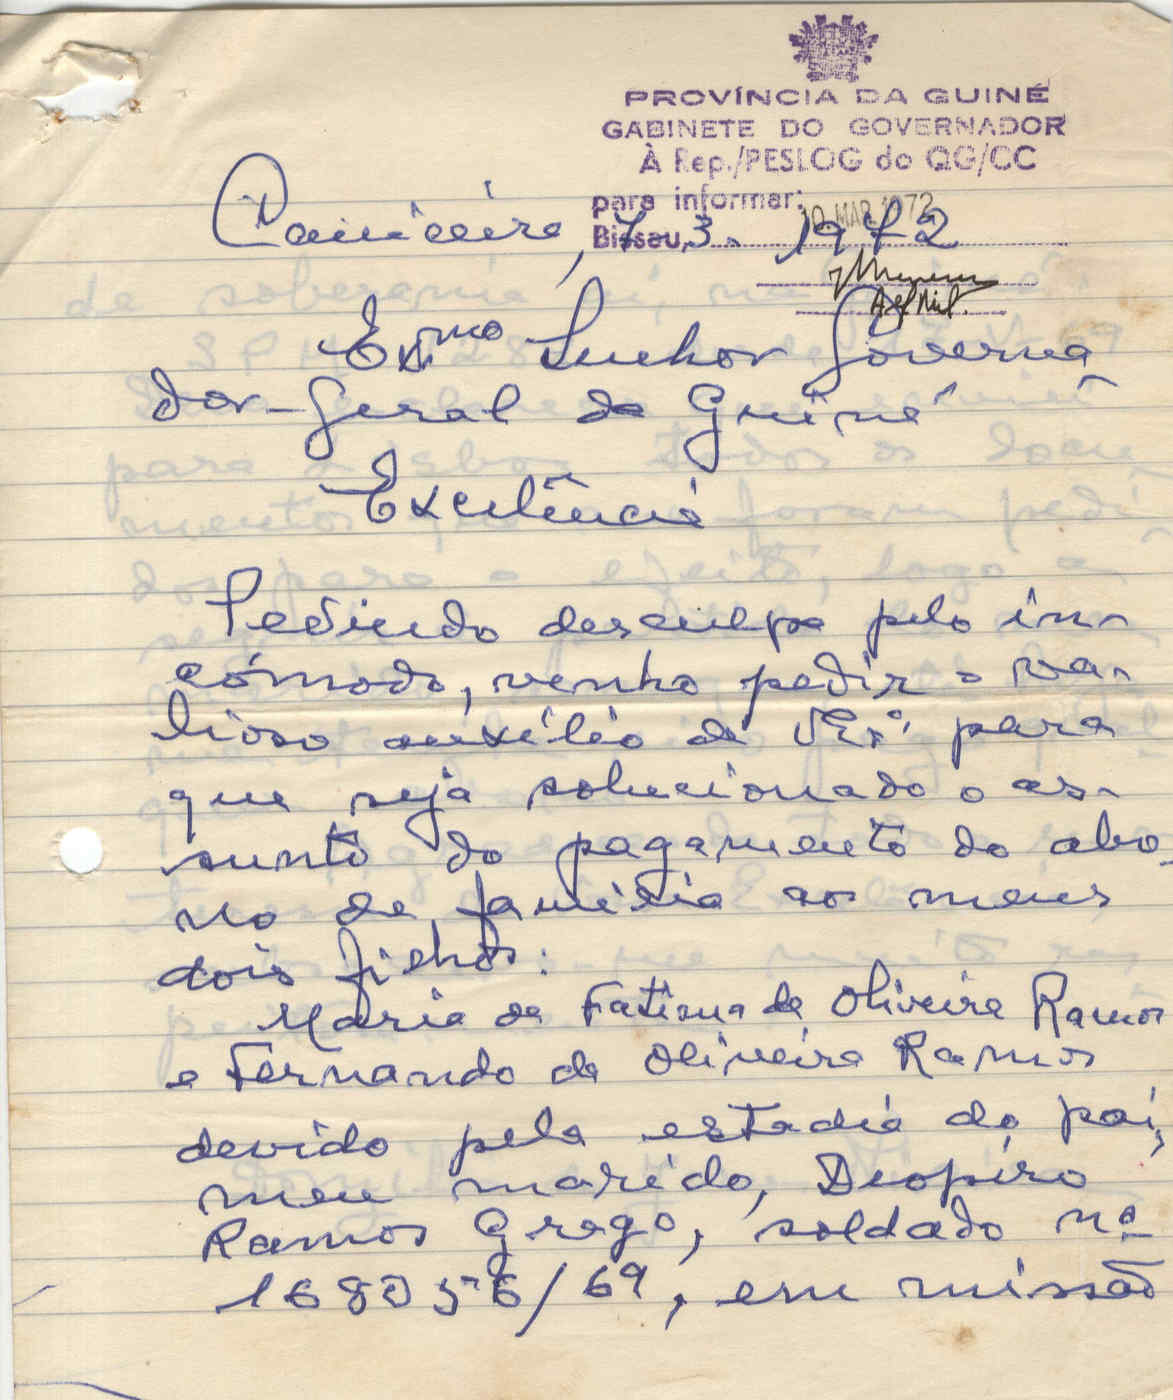 PROVÍNCIA DA GUINÉ
GABINETE DO GOVERNADOR
À Rep./PESLOG do QG/CC
para informar:
10 MAR 1972
Bissau,
Caniceira, 7.3.1972
Exmo Senhor Governa
dor-Geral da Guiné
Excelência
Pedindo desculpa pelo in-
cómodo, venho pedir o va-
lioso auxílio de V. Exª para
que seja solucionado o as-
sunto do pagamento do abo-
no de família aos meus
dois filhos:
Maria de Fatima de Oliveira Ramos
e Fernando de Oliveira Ramos
devido pela estadia do pai,
meu marido, Diopiro
Ramos Grego, soldado nº
168056/69, em missão